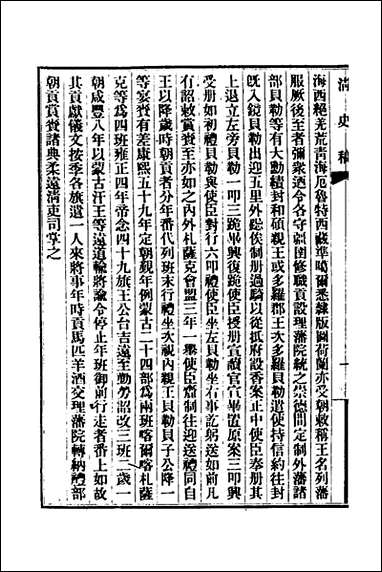 清史稿
海西絕荒青海厄魯特西藏準噶爾悉隸版圖荷蘭亦受朝敕稱王名列藩
服厥後至者彌衆迺令各守疆圉修職貢設理藩院統之崇德間定制外藩諸
部貝勒等有大勳績封和碩親王或多羅郡王次多羅貝勒遣使持信約往封
旣入鏡貝勒出迎五里外聽俟制册過騎以從抵府設香案正中使臣奉册其
上退立左旁貝勒一叩三跪畢興復跪使臣授册宣讀官宣畢置原案三叩興
受册如初禮貝勒與使臣對行六叩禮使臣坐左貝勒坐右事訖躬送如前凡
有詔敕賞賚至亦如之內外札薩克會盟三年一舉使臣齎制往迎送禮同自
王以降歲時朝貢者分年番代列班末行禮坐次視內親王貝勒貝子公降一
等宴賚有差康熙五十九年定朝覲年例蒙古二十四部爲兩班喀爾喀札薩
克等爲四班雍正四年帝念四十九旗王公台吉遠至勤勞詔改三班二歲一
朝咸豐八年以蒙古汗王等遠道輸將諭令停止年班御前行走者番上如故
其貢獻儀文按季各旗遣一人來將事年時貢馬匹羊酒交理藩院轉納禮部
朝貢賞賚諸典柔遠淸吏司掌之